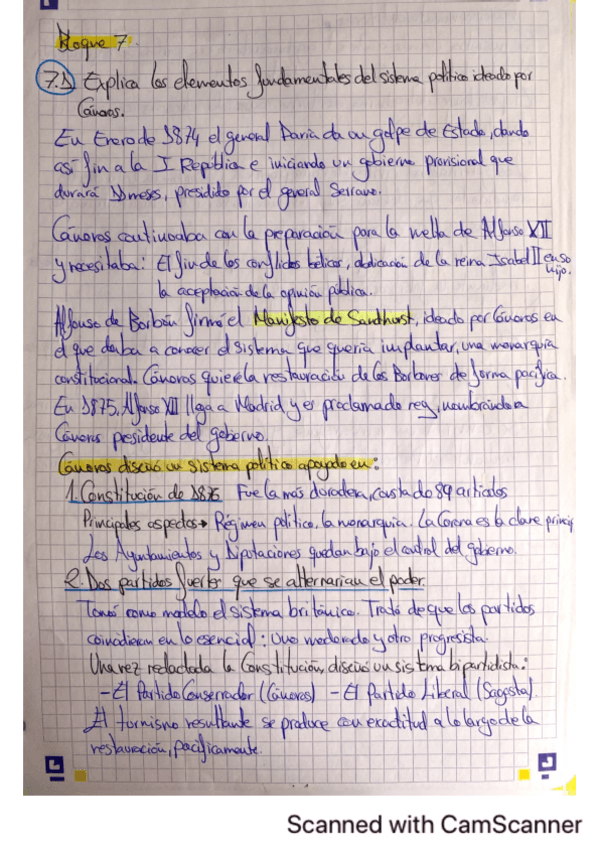 Bloque 7.
7.1) Explica los elementos fundamentales del sistema político ideado por
Cánovas.
En Enero de 1874 el general Pavía da un golpe de Estado, dando
así fin a la I República e iniciando un gobierno provisional que
durará 11 meses, presidido por el general Serrano.
Cánovas continuaba con la preparación para la vuelta de Alfonso XII
y necesitaba: El fin de los conflictos bélicos, abdicación de la reina Isabel II en su
hijo.
la aceptación de la opinión pública.
Alfonso de Borbón firmó el Manifiesto de Sandhurst, ideado por Cánovas en
el que daba a conocer el sistema que quería implantar, una monarquía
constitucional. Cánovas quiere la restauración de los Borbones de forma pacífica.
En 1875, Alfonso XII llega a Madrid y es proclamado rey, nombrando a
Cánovas presidente del gobierno.
Cánovas diseñó un sistema político apoyado en:
1. Constitución de 1876 Fue la más duradera, consta de 89 artículos
Principales aspectos → Régimen político, la monarquía. La Corona es la clave princip
Los Ayuntamientos y Diputaciones quedan bajo el control del gobierno.
2. Dos partidos fuertes que se alternarían el poder.
Tomó como modelo el sistema británico. Trató de que los partidos
coincidieran en lo esencial: Uno moderado y otro progresista.
Una vez redactada la Constitución, diseñó un sistema bipartidista:
- El Partido Conservador (Cánovas) - El Partido Liberal (Sagasta).
El turnismo resultante se produce con exactitud a lo largo de la
restauración, pacíficamente.
Scanned with CamScanner